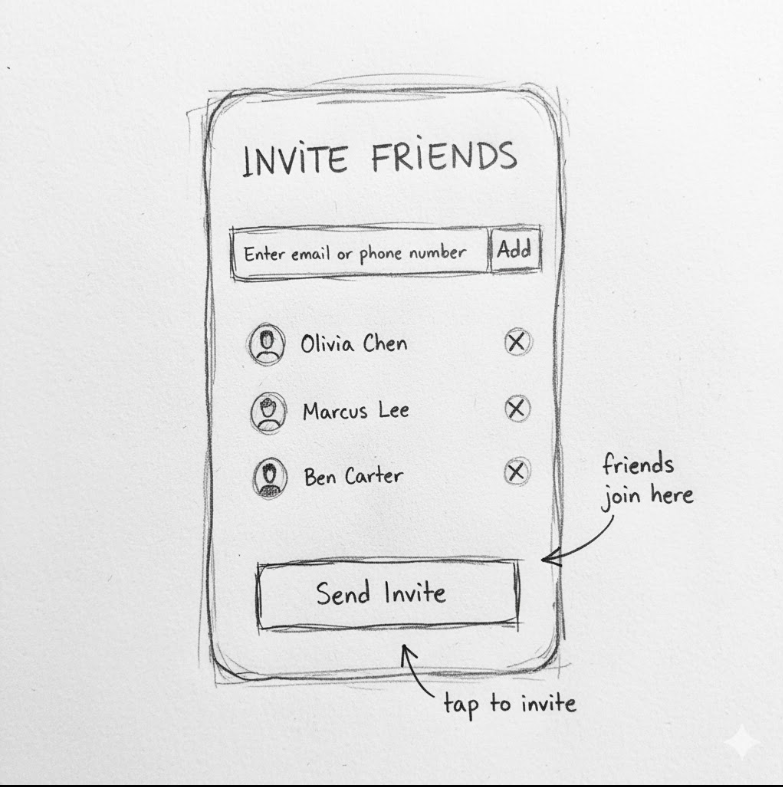 INViTE FRiENDS
Enter email or phone number Add
Olivia Chen
Marcus Lee
Ben Carter
friends
join here
Send Invite
tap to invite